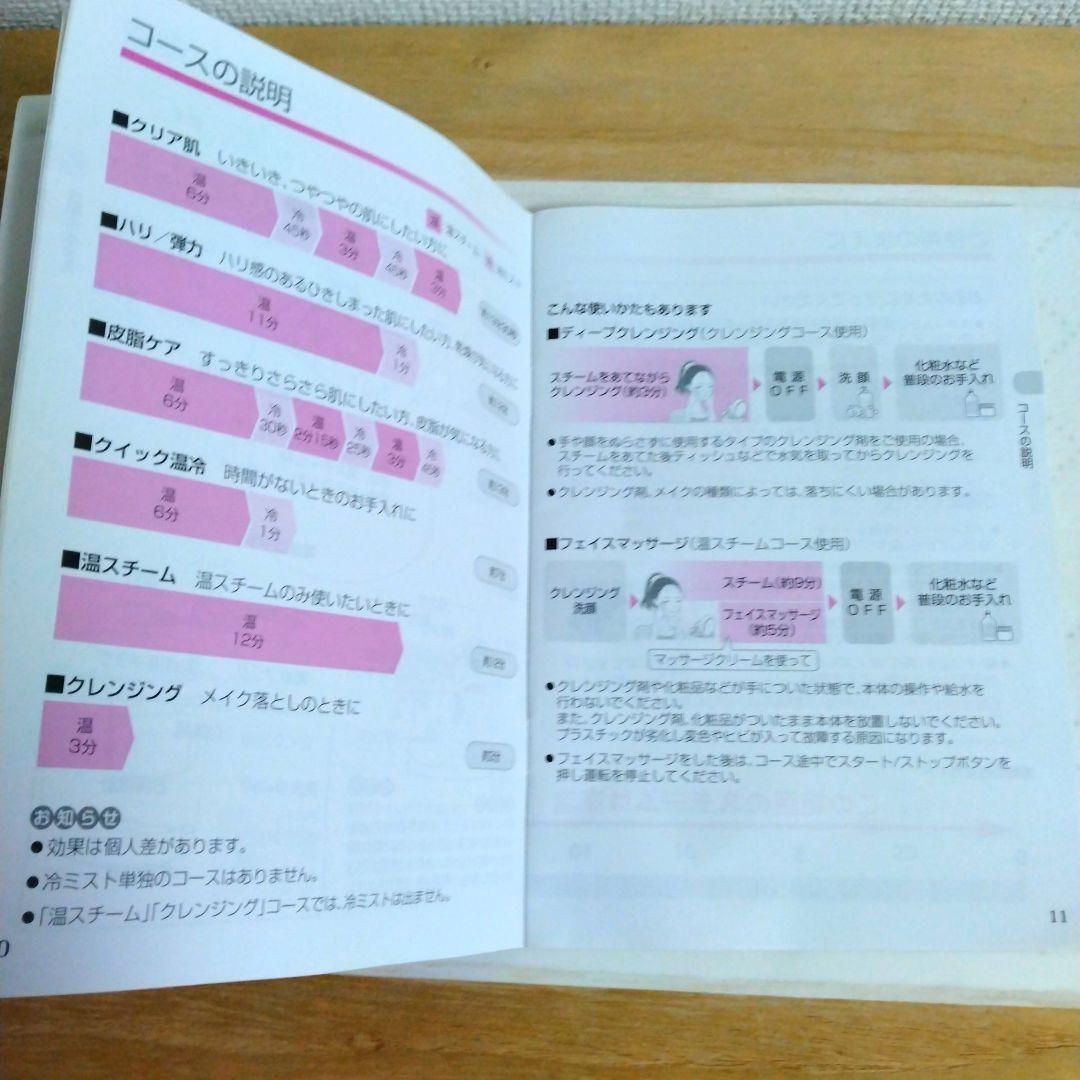 コースの説明
温 温スチーム 冷
■クリア肌 いきいき、つやつやの肌にしたい方に
温 6分 冷 45秒 温 3分 冷 45秒 温 3分
■ハリ/弾力 ハリ感のあるひきしまった肌にしたい方、
温 11分 冷 1分
■皮脂ケア すっきりさらさら肌にしたい方、皮脂が気になる方に
温 6分 冷 30秒 温 2分15秒 冷 25秒 温 3分 冷
■クイック温冷 時間がないときのお手入れに
温 6分 冷 1分
■温スチーム 温スチームのみ使いたいときに
温 12分
約12分
■クレンジング メイク落としのときに
温 3分
約3分
お知らせ
●効果は個人差があります。
●冷ミスト単独のコースはありません。
●「温スチーム」「クレンジング」コースでは、冷ミストは出ません。
0
こんな使いかたもあります
■ディープクレンジング(クレンジングコース使用)
スチームをあてながら
クレンジング(約3分)
電源
OFF
洗顔
化粧水など
普段のお手入れ
●手や顔をぬらさずに使用するタイプのクレンジング剤をご使用の場合、
スチームをあてた後ティッシュなどで水気を取ってからクレンジングを
行ってください。
●クレンジング剤、メイクの種類によっては、落ちにくい場合があります。
■フェイスマッサージ(温スチームコース使用)
クレンジング
洗顔
スチーム(約9分)
フェイスマッサージ
(約5分)
マッサージクリームを使って
電源
OFF
化粧水など
普段のお手入れ
●クレンジング剤や化粧品などが手についた状態で、本体の操作や給水を
行わないでください。
また、クレンジング剤、化粧品がついたまま本体を放置しないでください。
プラスチックが劣化し変色やヒビが入って故障する原因になります。
●フェイスマッサージをした後は、コース途中でスタート/ストップボタンを
押し運転を停止してください。
コースの説明
11